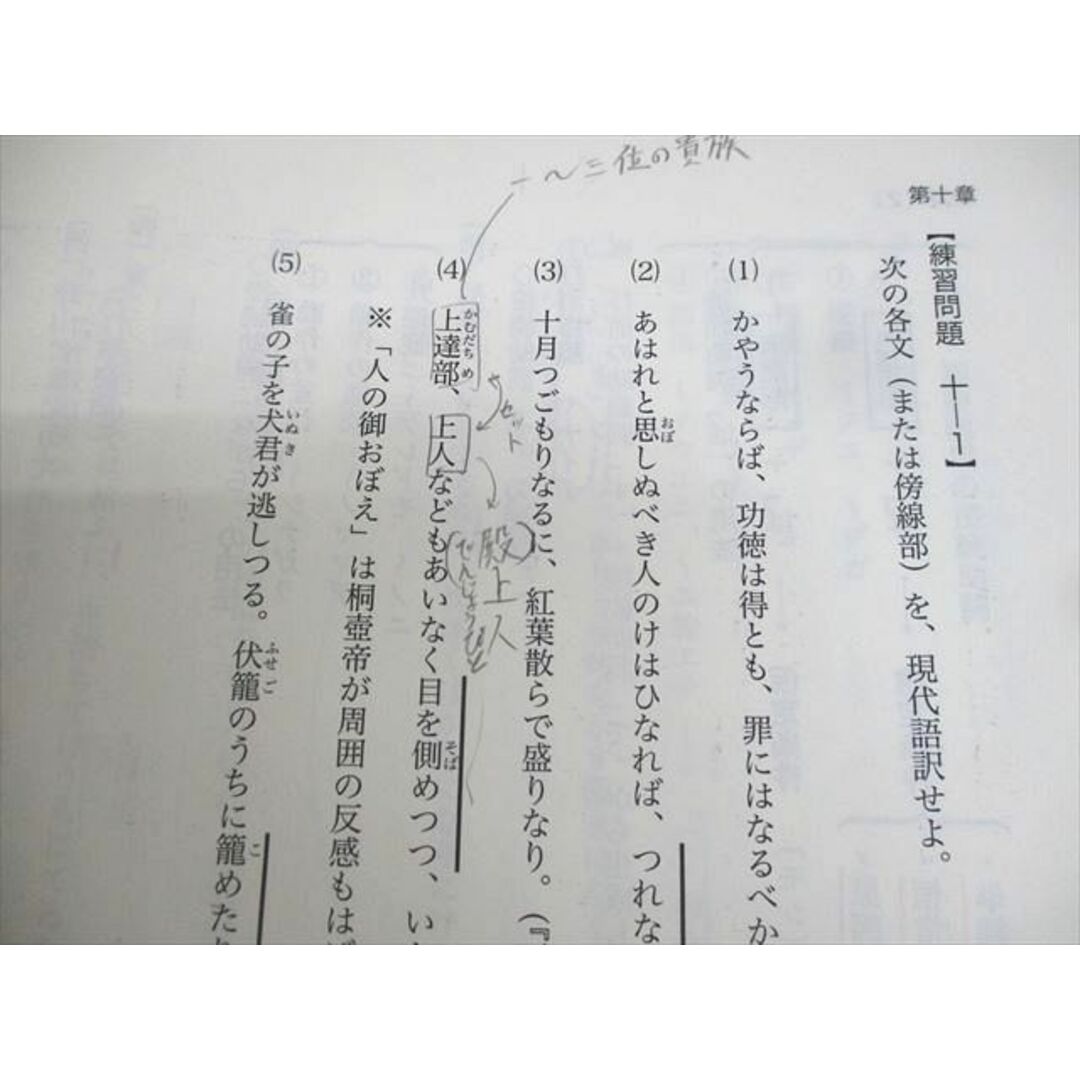 第十章
【練習問題 十―1】
次の各文（または傍線部）を、現代語訳せよ。
(1) かやうならば、功徳は得とも、罪にはなるべか
(2) あはれと思しぬべき人のけはひなれば、つれな
おぼ
(3) 十月つごもりなるに、紅葉散らで盛りなり。（『
一〜三位の貴族
セット
殿上人
(でんじょうびと)
(4) 上達部、上人などもあいなく目を側めつつ、い
かむだちめ
そば
※「人の御おぼえ」は桐壺帝が周囲の反感もは
(5) 雀の子を犬君が逃しつる。伏籠のうちに籠めた
いぬき
ふせご
こ